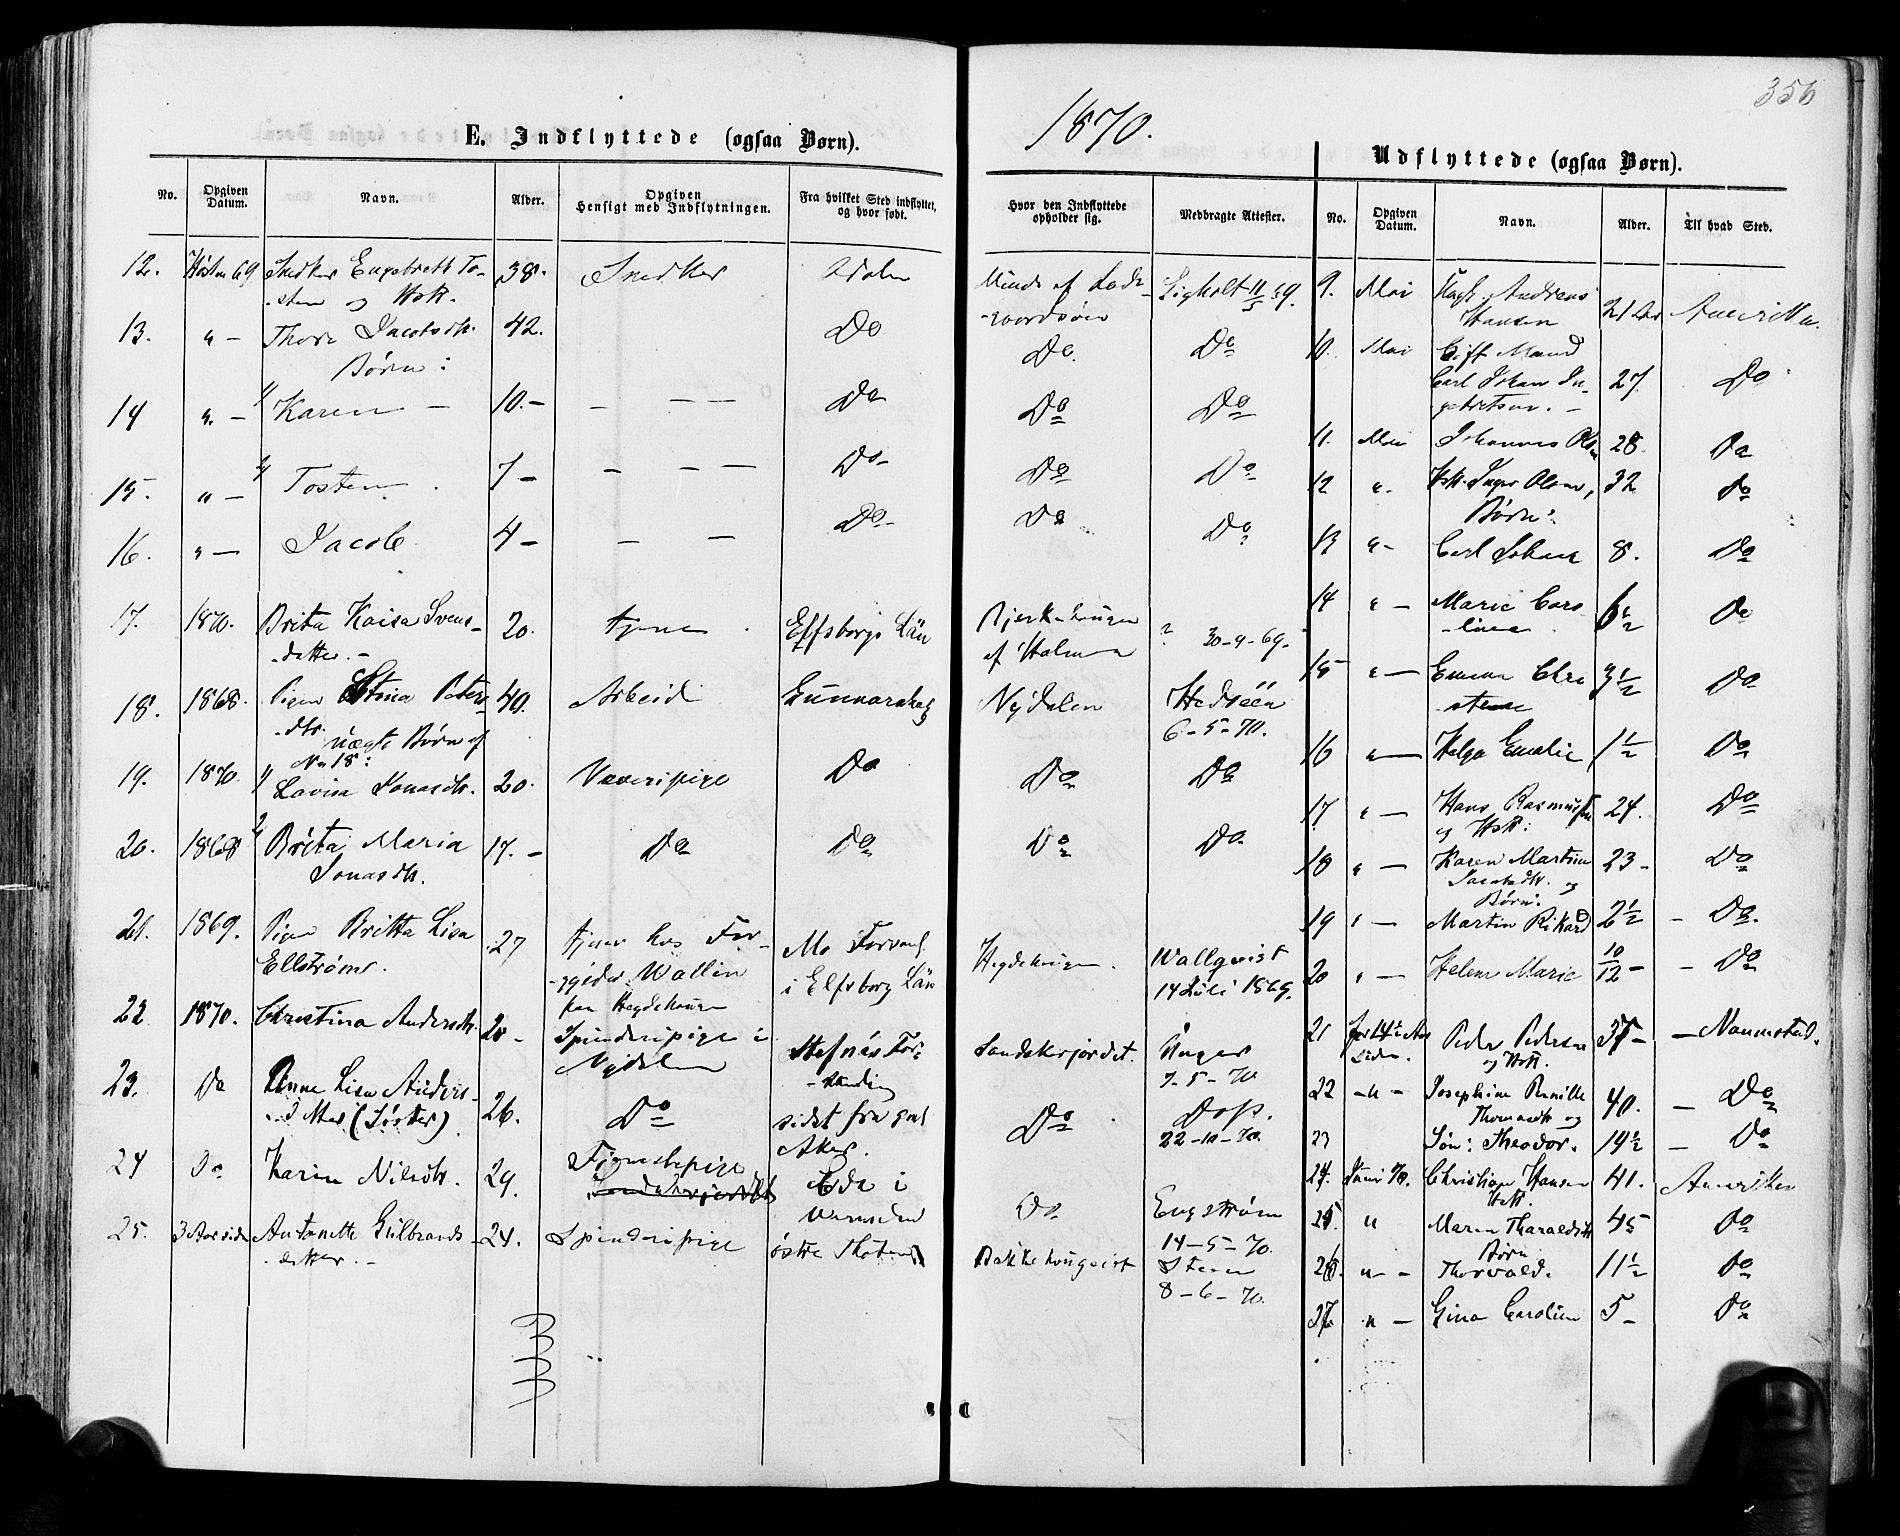 356
1870.
E. Indflyttede (ogsaa Børn).
No. Opgiven Datum. Navn. Alder. Opgiven Hensigt med Indflytningen. Fra hvilket Sted indflyttet, og hvor født. Hvor den Indflyttede opholder sig. Medbragte Attester.
12. Høsten 69 Snedker Engebreth To-
sten og Hstr. 38. Snedker Adalen
13. " — Thore Jacobsdtr. 42. Do Do Do
Børn:
14 " — 1/ Karen — 10. — — — — Do Do Do
15. " — 2/ Tosten. 7 — — — — Do Do Do
16. " — Jacob 4 — — — Do Do Do
17. 1870. Brita Kaisa Svens-
datter. — 20. tjene Elfsborgs Län
af Holmen ? 30-9-69.
18. 1868. Pigen Stina Peters-
dtr. 40. Arbeid Gunnarskog Nydalen
6-5-70.
uægte Børn af
No 18:
19. 1870 1/ Lovisa Jonasdtr. 20. Væveripige Do Do Do
20. 1868 2/ Brita Maria
Jonasdtr. 17. — Do Do Do Do
21. 1869. Pigen Britta Lisa
Ellstrøms. 27 tjener hos For-
gylder Wallin
paa Hegdehaugen
Mo Forsaml.
i Elfsborg Län Hegdehaugen. Wallqvist
14 Juli 1869.
22 1870. Christina Andersdtr. 20 — Spinderipige i
Nydalen
Landskrjordet. Unger
7-5-70
23. Do Anne Lisa Anders-
datter (Søster). 26. Do
sidst fra
Aker. Do Do
22-10-70.
24 Do Karin Nilsdtr. 29. Tjenestepige
Eda i
Do Engstrøm
14-5-70.
25. 3 Aar siden Antonette Gulbrands-
datter. — 24. Spinderipige østre Thoten Bakkehaugen Steen
8-6-70.
Udflyttede (ogsaa Børn).
No. Opgiven Datum. Navn. Alder. Til hvad Sted.
9. Mai Ungk. Andreas
Hansen 21 Amerika.
10. Mai Gift Mand
Carl Johan In-
gebretsen. — 27 Do
11. Mai Johannes Olsen 28. Do
12 " Hstr. Inger Olsen, 32 Do
Børn:
13 " — Carl Johan 8. Do
14 " — Marie Caro-
line 6 1/2 Do
15 " — Emma Chri-
stense 3 1/2 Do
16 " — Helga Emalie 1 1/2 Do
17 " — Hans Rasmussen
og Hstr: 24. Do
18 " — Karen Martine
Jacobsdtr. og 23 — Do
Børn:
19 " — Martin Rikard 2 1/2 — Do.
20 " — Helene Marie 10/12 — — Do
21 for 1 1/2 Aar
siden. Peder Pedersen
og Hstr. 37 —
22 — " — Josephine Pernille
Thomasdtr og 40. — Do
23 Søn: Theodor. 14 1/2 — Do
24. Juni 70. Christian Hansen
Hstr. 41. Amerika
25. " Maren Tharaldsdtr 45 Do
Børn
26. " — Thorvald. 11 1/2 Do
27 " — Gina Caroline 5 — Do